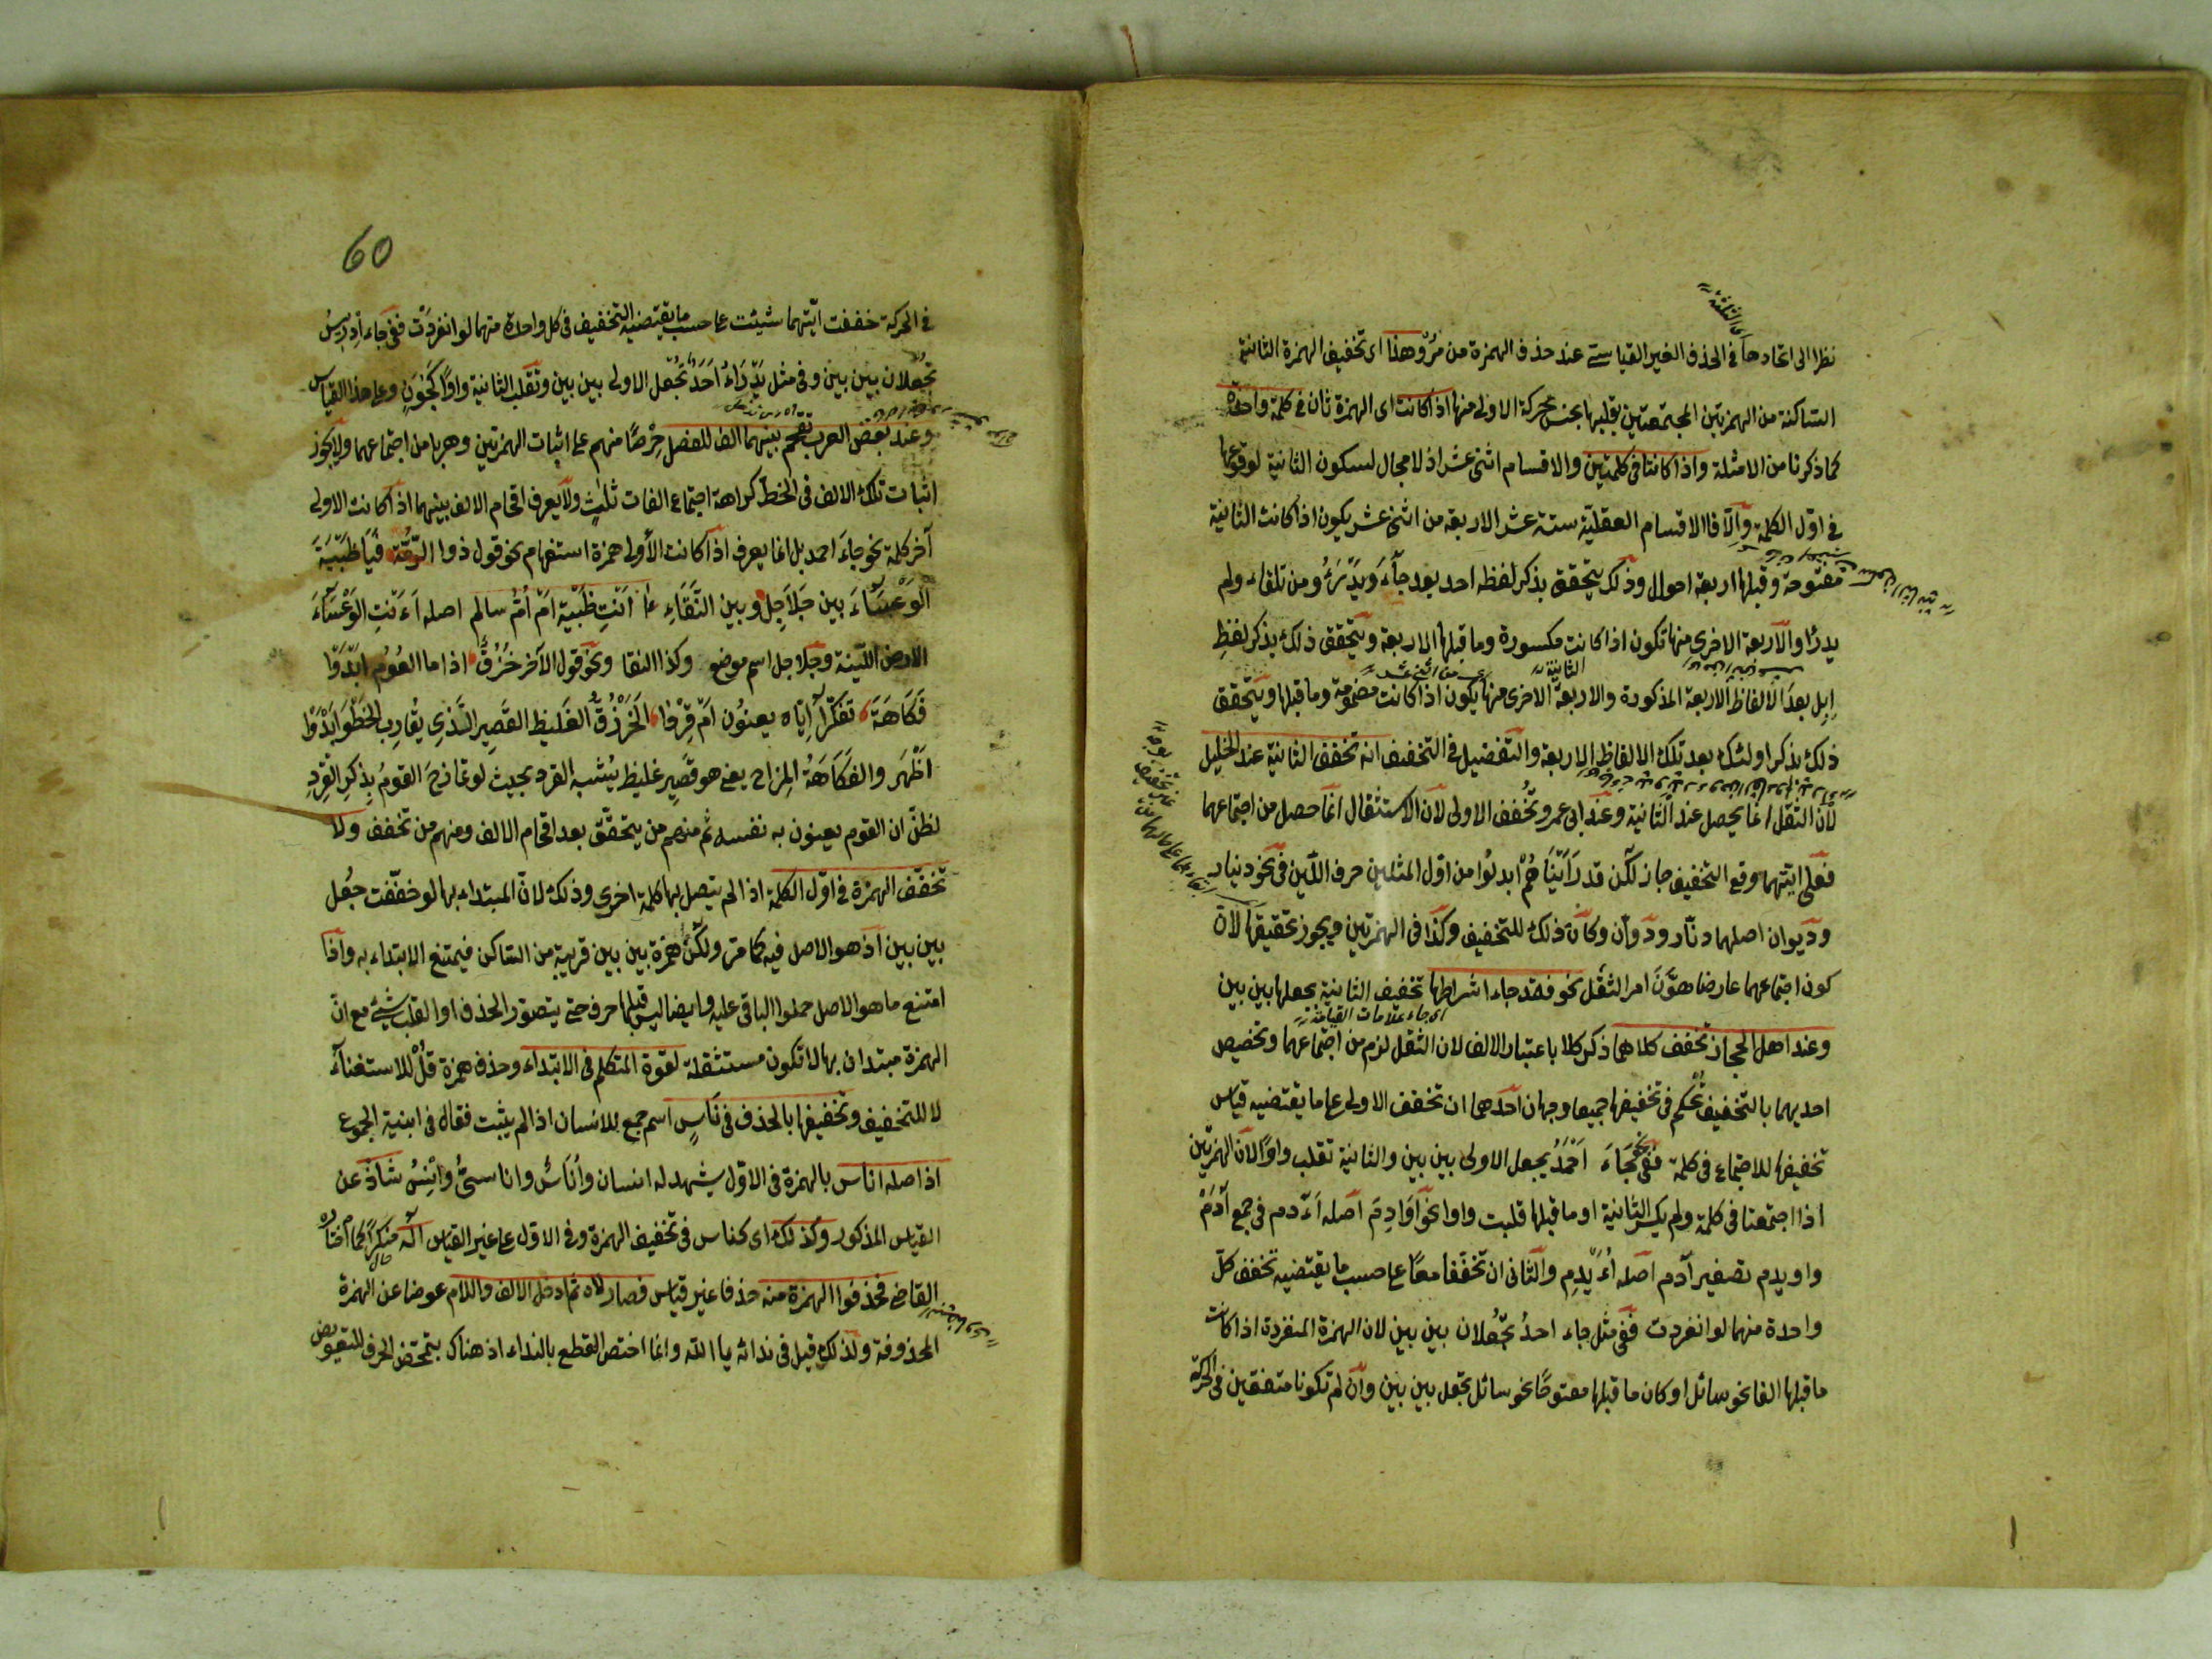 نظرا الى اتحادها فى الحذف الغير القياسى عند حذف الهمزة من مُرْ وهذا اى تخفيف الهمزة الثانية
الساكنة من الهمزتين المجتمعتين بقلبها بجنس حركة الاولى منها اذا كانت اى الهمزة ثان فى كلمة واحدة
كما ذكرنا من الامثلة واذا كانتا فى كلمتين والاقسام اثنى عشر اذ لا مجال لسكون الثانية لوقوعها
فى اوّل الكلمة والّا فالاقسام العقليّة ستة عشر الاربعة من اثنى عشر يكون اذا كانت الثانية
مفتوحة وقبلها اربعة احوال وذلك يتحقق بذكر لفظه احد بعد جاءَ ويَدْرَءُ ومن تلقاء ولم
يدرا والاربعة الاخرى منها تكون اذا كانت مكسورة وما قبلها الاربعة ويتحقق ذلك بذكر لفظِ
الثانية
اِبِل بعدَ الالفاظ الاربعة المذكورة والاربعة الاخرى منها يكون اذا كانت مضمومة وما قبلها ويتحقق
ذلك بذكر اولئك بعد تلك الالفاظ الاربعة والتفضيل فى التخفيف انه تخفف الثانية عند الخليل
لأن الثقل انما يحصل عند الثانية وعند ابى عمرو تُخفف الاولى لان الاستثقال انما حصل من اجتماعهما
فعلى ايتهما وقع التخفيف جاز لكن قد رَاَيْنَاهُمْ ابدلُوا من اوّل المثلين حرف اللين فى نحو دينار
وديوان اصلهما دنّار ودوّان وكان ذلك للتخفيف وكذا فى الهمزتين ويجوز تحقيقها لان
كون اجتماعهما عارضا هوّنَ امر الثقل نحو فقد جاء اشراطها تخفيف الثانية بجعلها بين بين
اى جاء علامات القيامة
وعند اهل الحجاز تخفف كلاهما ذكر كلا باعتبار الالف لان الثقل لزم من اجتماعهما وتخصيص
احديهما بالتخفيف تحكم فى تخفيفها جميعا وجهان احدهما ان تخفف الاولى على ما يقتضيه قياس
تخفيفها للاجتماع فى كلمة ففى نحو جَاءَ اَحْمَدُ يجعل الاولى بين بين والثانية تقلب واوًا لان الهمزتين
اذا اجتمعتا فى كلمة ولم يكسر الثانية او ما قبلها قلبت واوا نحو اَوَادِمَ اصله اَءَدم فى جمع آدَمْ
واويدم تصغير آدم اصله اُءَيْدِم والثانى ان تخففا معًا على حسب ما يقتضيه تخفف كلّ
واحدة منهما لو انفردت ففى مثل جاء احدُ تُجعلان بين بين لان الهمزة المنفردة اذا كانت
ما قبلها الفا نحو سائل او كان ما قبلها مفتوحًا نحو سائل تجعل بين بين وان لم تكونا متفقين فى الحركة
60
فى الحركة خففت ايتهما شيئت على حسب ما يقتضيه التخفيف فى كل واحدة منهما لو انفردَتْ ففى جَاءَ اِدريسُ
تُجعلان بين بين وفى مثل يَدْرَاءُ اَحَدٌ تُجعل الاولى بين بين وتقلب الثانية واوًا كَجُوَنٍ وعلى هذا القياس
وعند بَعْض العرب تقحم بينهما الف للفصل حِرْصًا منهم على اثبات الهمزتين وهربا من اجتماعهما ولا يجوز
اثبات تلك الالف فى الخطّ كراهة اجتماع الفات ثلٰثٍ ولا يعرف اقحام الالف بينهما اذا كانت الاولى
آخر كلمة نحو جاءَ احمد بل انما يعرف اذا كانت الأولى همزة استفهام نحو قول ذو الرُّمَّة فَيَا ظَبْيَةَ
الْوَعْسَاءَ بين جَلَاجِلٍ وبين النَّقَاءِ ءا اَنْتِ ظَبْيَة اَمْ اُمُّ سالم اصله اَءَنْتِ الوَعْسَاءَ
الارض الليّنة وجلاجل اسم موضع وكذا النقا ونحو قول الآخر حُزُقٌّ اذا ما القُوْمِ ابْدَوْا
فَكَاهَةً تفكّرَ آاِيّاه يعنُون اَمْ قِرْدًا الْحَزُقُّ الغَليظ القَصِير الَّذِى يُقَارِب الخَطْوَ اَبْدَوْا
اَظْهَر والفَكَاهَةُ المِزَاح يعنى هو قَصِير غليظ يُشبه القرد بحيث لو تمازحَ القومُ بِذِكر القِرْدِ
لظنّ ان القوم يعنون به نفسه ثم منهم من يتحقّق بعد اقحام الالف ومنهم من تخفف ولا
تخفّف الهمزة فى اوّل الكلمة اذا لم يتصل بها كلمة اخرى وذلك لان المبتداء بها لو خففت جُعل
بين بين اذ هو الاصل فيه كما مرّ ولكن همزة بين بين قريبة من الساكن فيمتنع الابتداء به واذا
امتنع ما هو الاصل حملوا الباقى عليه وايضا ليس قبلها حرف حتى يتصوّر الحذف او القلب بشئ مع انّ
الهمزة مبتدا ن بها لا تكون مستثقلة لقوة المتكلم فى الابتداء وحذف همزة قُلْ للاستغناءَ
لا للتخفيف وتخفيفها بالحذف فى نَاسٍ اسم جمع للانسان اذا لم يثبت فعال فى ابنية الجموع
اذ اصله اناس بالهمزة فى الاوّل يشهد له انسان واُنَاسٌ واناسىُّ واُنَيْسٌ شاذّ عن
القياس المذكور وكذلك اى كناس فى تخفيف الهمزة وفى الاول على غير القياس اله منكرًا كما اختاره
القاضى فحذفوا الهمزة منه حذفا غير قياس فصار لاه ثم ادخل الالف واللام عوضا عن الهمزة
المحذوفة ولذلك قيل فى ندائه يا الله وانما اختص القطع بالنداء اذ هناك يتمحّض الحرف للتعويض